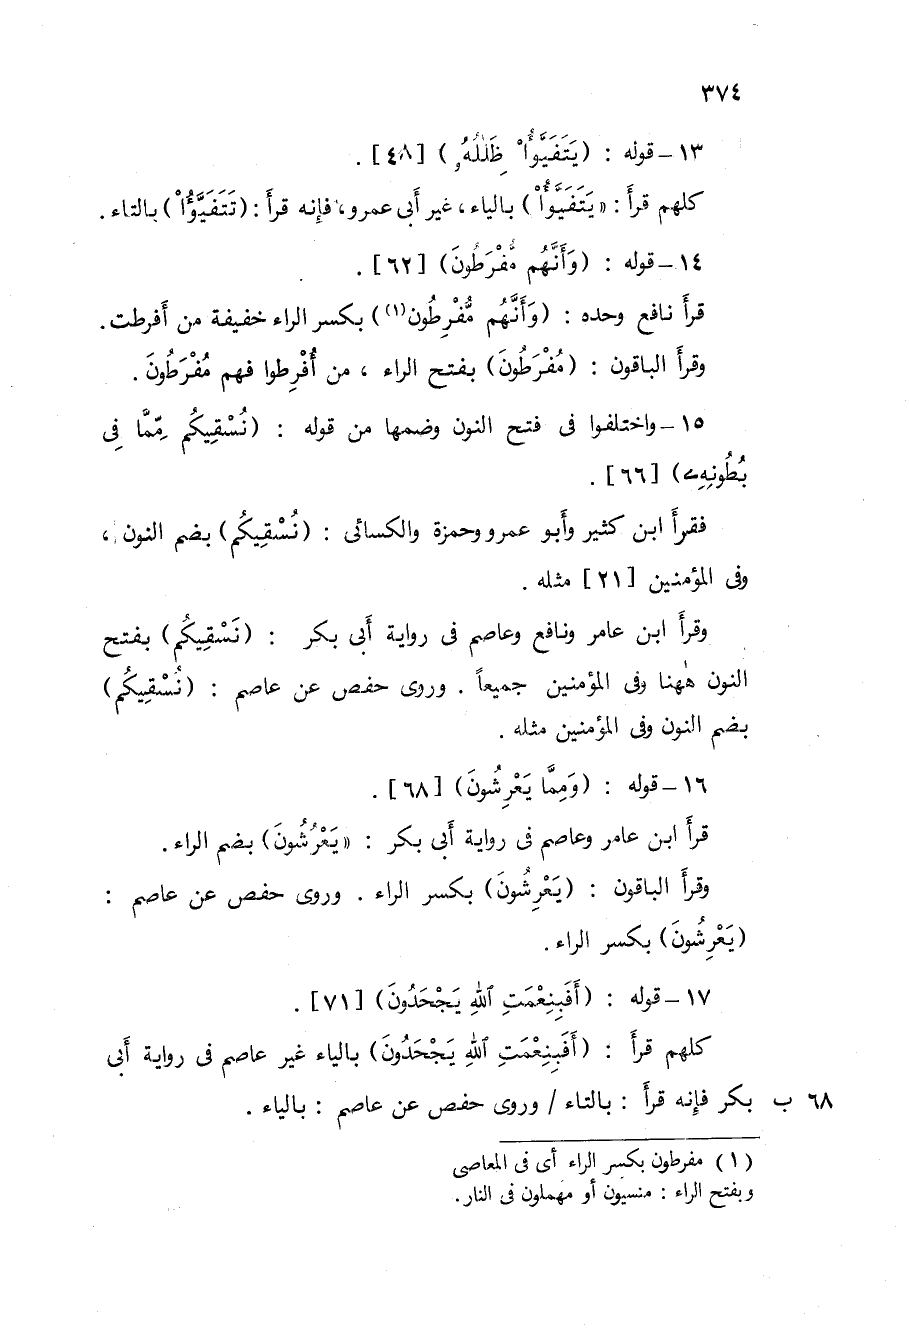 ٣٧٤
١٣ ــ قوله : ( يَتَفَيَّؤُاْ ظِلَٰلُهُۥ ) [٤٨] .
كلهم قرأ : « يَتَفَيَّؤُاْ ) بالياء ، غير أبى عمرو ، فإنه قرأ : ( تَتَفَيَّؤُاْ ) بالتاء .
١٤ ــ قوله : ( وَأَنَّهُم مُّفْرَطُونَ ) [٦٢] .
قرأ نافع وحده : ( وَأَنَّهُم مُّفْرِطُون(١) ) بكسر الراء خفيفة من أفرطت .
وقرأ الباقون : ( مُفْرَطُونَ ) بفتح الراء ، من أُفْرِطوا فهم مُفْرَطُونَ .
١٥ ــ واختلفوا فى فتح النون وضمها من قوله : ( نُسْقِيكُم مِّمَّا فِى
بُطُونِهِۦ ) [٦٦] .
فقرأ ابن كثير وأبو عمرو وحمزة والكسائى : ( نُسْقِيكُم ) بضم النون ،
وفى المؤمنين [٢١] مثله .
وقرأ ابن عامر ونافع وعاصم فى رواية أبى بكر : ( نَسْقِيكُم ) بفتح
النون هٰهنا وفى المؤمنين جميعاً . وروى حفص عن عاصم : ( نُسْقِيكُم )
بضم النون وفى المؤمنين مثله .
١٦ ــ قوله : ( وَمِمَّا يَعْرِشُونَ ) [٦٨] .
قرأ ابن عامر وعاصم فى رواية أبى بكر : « يَعْرُشُونَ ) بضم الراء .
وقرأ الباقون : ( يَعْرِشُونَ ) بكسر الراء . وروى حفص عن عاصم :
( يَعْرِشُونَ ) بكسر الراء .
١٧ ــ قوله : ( أَفَبِنِعْمَتِ ٱللهِ يَجْحَدُونَ ) [٧١] .
كلهم قرأ : ( أَفَبِنِعْمَتِ ٱللهِ يَجْحَدُونَ ) بالياء غير عاصم فى رواية أبى
٦٨ ب بكر فإنه قرأ : بالتاء / وروى حفص عن عاصم : بالياء .
( ١ ) مفرطون بكسر الراء أى فى المعاصى
وبفتح الراء : منسيون أو مهملون فى النار .